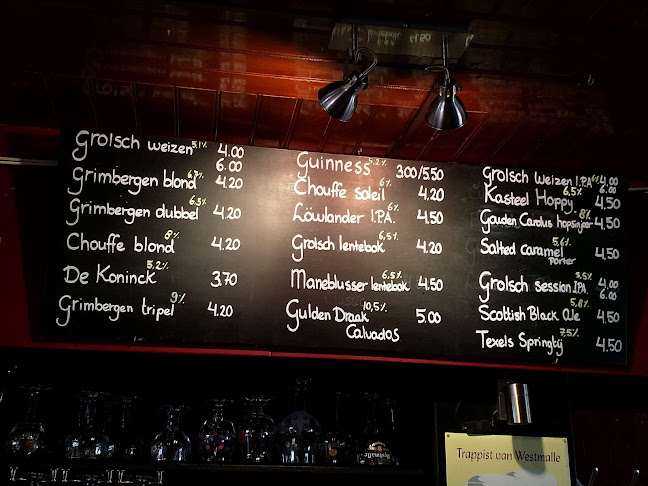 Grolsch weizen 5.1% 4.00
6.00
Grimbergen blond 6.7% 4.20
Grimbergen dubbel 6.5% 4.20
Chouffe blond 8% 4.20
De Koninck 5.2% 3.70
Grimbergen tripel 9% 4.20
Guinness 5.2% 3.00/5.50
Chouffe soleil 6% 4.20
Löwlander I.P.A. 6% 4.50
Grolsch lentebok 6,5% 4.20
Maneblusser lentebok 6.5% 4.50
Gulden Draak 10,5% 5.00
Calvados
Grolsch Weizen I.P.A 6% 4.00
6.00
Kasteel Hoppy 6,5% 4.50
Gouden Carolus hopsinjoor 8% 4.50
Salted caramel 5,6% 4.50
porter
Grolsch session I.P.A. 3.5% 4.00
6.00
Scottish Black Ale 5,8% 4.50
Texels Springtij 7.5% 4.50
Trappist van Westmalle